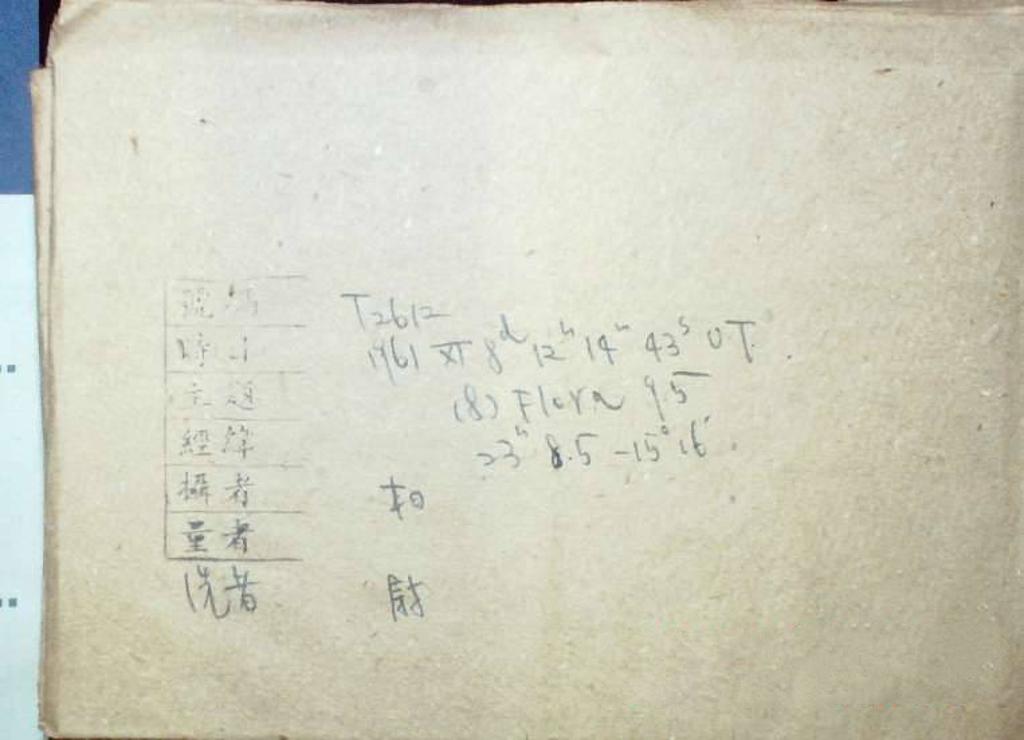 號碼 T2612
時刻 1961 XI 8d 12h 14m 43s UT.
主題 (8) Flora 9.5
經緯 23h 8.5 -15° 16'
攝者
量者
洗者 尉